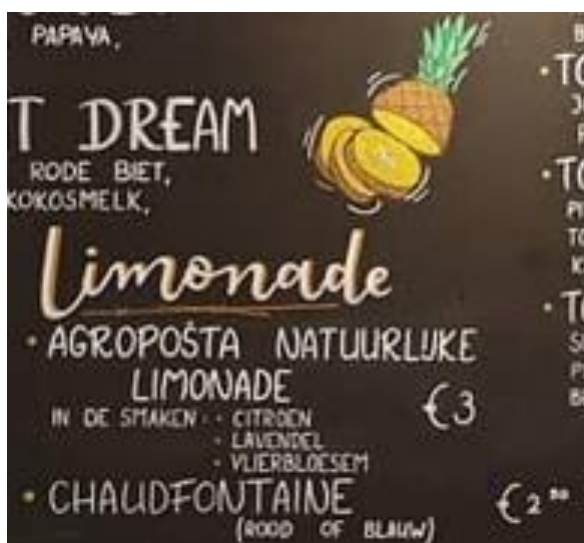 PAPAYA,
T DREAM
RODE BIET,
KOKOSMELK,
Limonade
• AGROPOŠTA NATUURLIJKE
LIMONADE €3
IN DE SMAKEN: • CITROEN
• LAVENDEL
• VLIERBLOESEM
• CHAUDFONTAINE €2
(ROOD OF BLAUW)